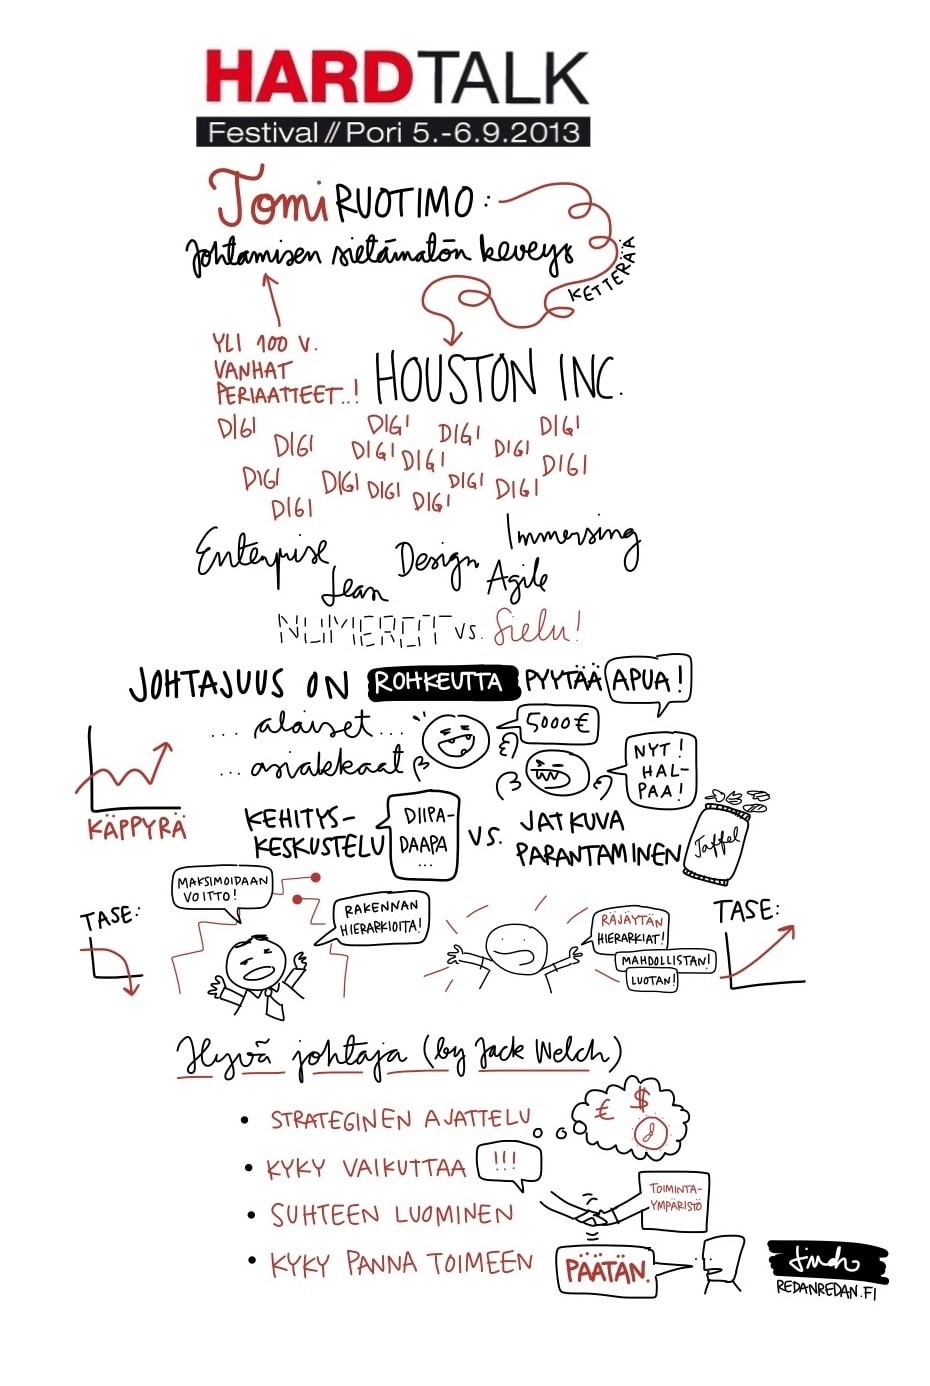 HARDTALK
Festival // Pori 5.-6.9.2013
Tomi RUOTIMO:
Johtamisen sietämätön keveys
KETTERÄÄ
YLI 100 V.
VANHAT
PERIAATTEET..!
HOUSTON INC.
DIGI DIGI DIGI DIGI DIGI
DIGI DIGI DIGI DIGI
DIGI DIGI DIGI DIGI DIGI
DIGI DIGI
Enterprise Design Immersing
Lean Agile
NUMEROT vs. Sielu!
JOHTAJUUS ON ROHKEUTTA PYYTÄÄ APUA!
... alaiset ...
5000€
... asiakkaat
NYT!
HAL-
PAA!
KÄPPYRÄ
KEHITYS-
KESKUSTELU
DIIPA-
DAAPA
...
VS.
JATKUVA
PARANTAMINEN
Taffel
TASE:
MAKSIMOIDAAN
VOITTO!
RAKENNAN
HIERARKIOITA!
RÄJÄYTÄN
HIERARKIAT!
MAHDOLLISTAN!
LUOTAN!
TASE:
Hyvä johtaja (by Jack Welch)
• STRATEGINEN AJATTELU
€ $
• KYKY VAIKUTTAA
!!!
• SUHTEEN LUOMINEN
TOIMINTA-
YMPÄRISTÖ
• KYKY PANNA TOIMEEN
PÄÄTÄN.
REDANREDAN.FI